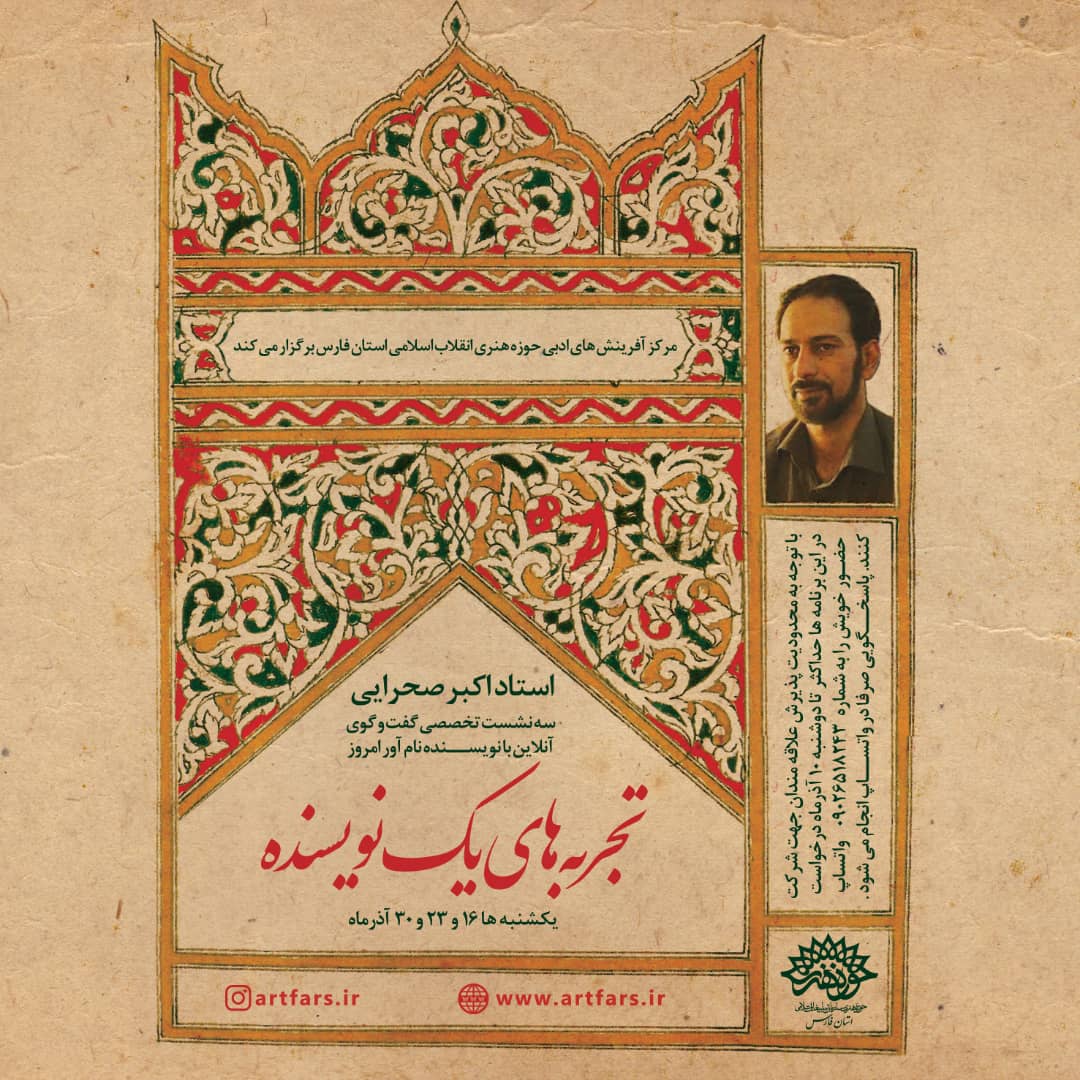 مرکز آفرینش های ادبی حوزه هنری انقلاب اسلامی استان فارس برگزار می کند
استاد اکبر صحرایی
سه نشست تخصصی گفت و گوی
آنلاین با نویسنده نام آور امروز
تجربه های یک نویسنده
یکشنبه ها ۱۶ و ۲۳ و ۳۰ آذرماه
با توجه به محدودیت پذیرش علاقه مندان جهت شرکت
در این برنامه ها حداکثر تا دوشنبه ۱۰ آذرماه درخواست
حضور خویش را به شماره ۰۹۰۲۶۵۱۸۲۴۳ واتساپ
کنند. پاسخگویی صرفا در واتساپ انجام می شود.
حوزه هنری
استان فارس
artfars.ir
www.artfars.ir